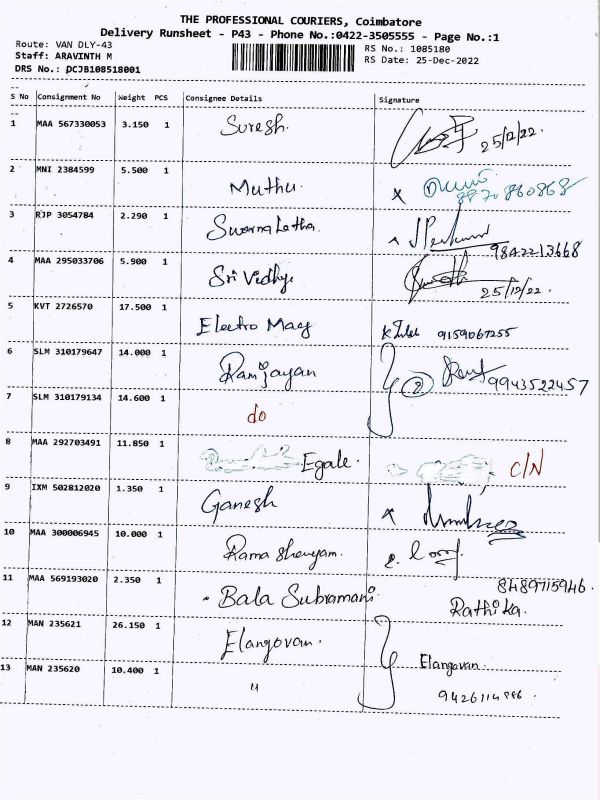 THE PROFESSIONAL COURIERS, Coimbatore
Delivery Runsheet - P43 - Phone No.:0422-3505555 - Page No.:1
Route: VAN DLY-43
RS No.: 1085180
Staff: ARAVINTH M
RS Date: 25-Dec-2022
DRS No.: DCJB108518001
S No Consignment No Weight PCS Consignee Details Signature
1 MAA 567330053 3.150 1 Suresh. 25/12/22.
2 MNI 2384599 5.500 1 Muthu x
8870860868
3 RJP 3054784 2.290 1 Swarna Latha.
9842213668
4 MAA 295033706 5.900 1 Sri Vidhya
25/12/22.
5 KVT 2726570 17.500 1 Electro Mag 9159067255
6 SLM 310179647 14.000 1 Ramjayan 2 9943522457
7 SLM 310179134 14.600 1 do
8 MAA 292703491 11.850 1 Egale. C/N
9 IXM 502812020 1.350 1 Ganesh x
10 MAA 300006945 10.000 1 Rama Shanyam.
11 MAA 569193020 2.350 1 Bala Subramani 8489715946.
Rathika.
12 MAN 235621 26.150 1 Elangovan. Elangovan.
13 MAN 235620 10.400 1 "